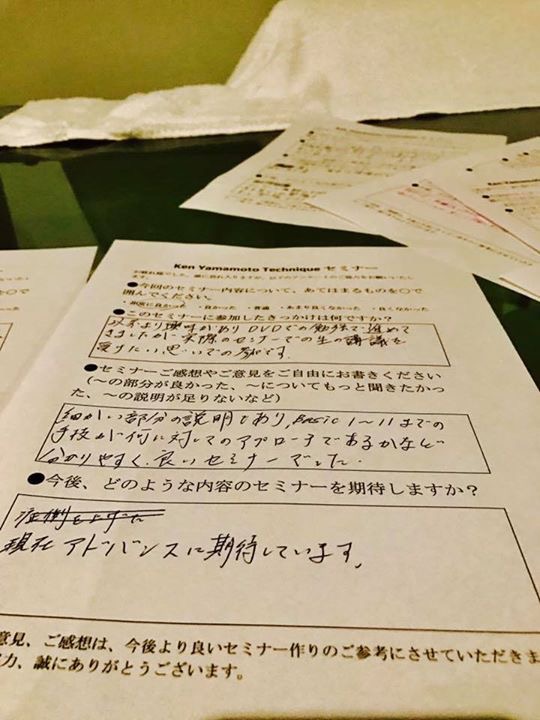 Ken Yamamoto Technique セミナー
●今回のセミナー内容について、あてはまるものを○で
囲んでください。
・非常に良かった ・良かった ・普通 ・あまり良くなかった ・良くなかった
●このセミナーに参加したきっかけは何ですか？
以前より興味がありDVDでの勉強で進めて
きましたが実際のセミナーでの生の講議を
受けたい思いでの参加です。
●セミナーご感想やご意見をご自由にお書きください
(〜の部分が良かった、〜についてもっと聞きたかっ
た、〜の説明が足りないなど)
細かい部分の説明もあり、Basic 1〜11までの
手技が何に対してのアプローチであるかなど
分かりやすく、良いセミナーでした。
●今後、どのような内容のセミナーを期待しますか？
現在アドバンスに期待しています。
意見、ご感想は、今後より良いセミナー作りのご参考にさせていただきま
力、誠にありがとうございます。